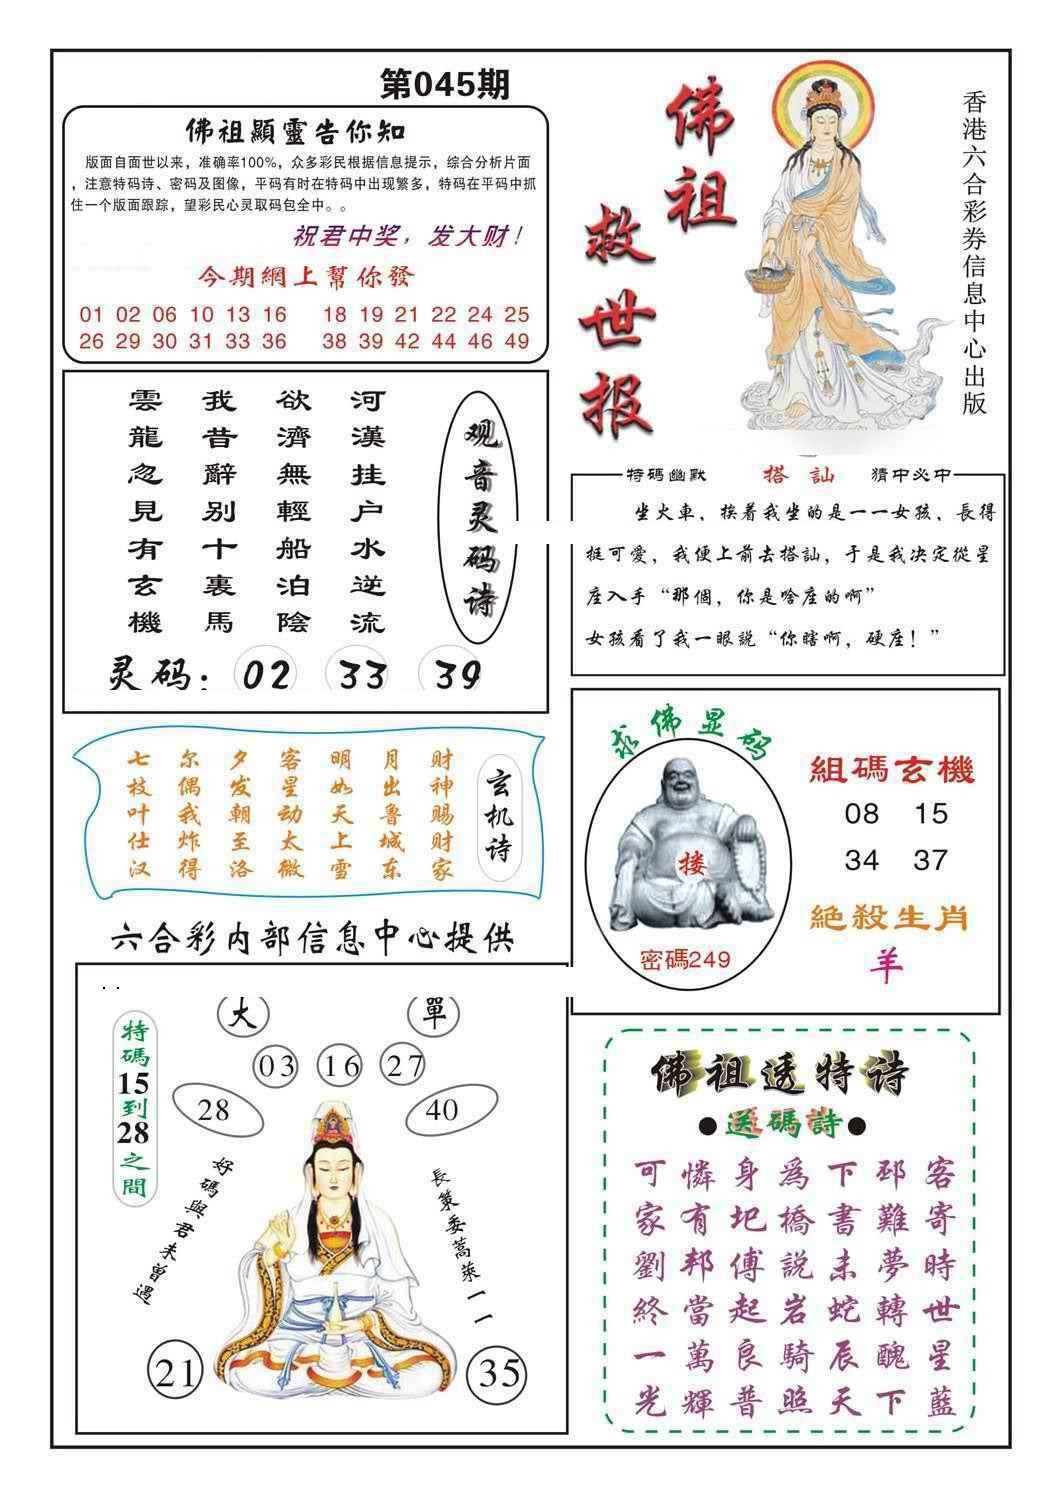 第045期
佛祖顯靈告你知
版面自面世以来，准确率100%，众多彩民根据信息提示，综合分析片面
，注意特码诗、密码及图像，平码有时在特码中出现繁多，特码在平码中抓
住一个版面跟踪，望彩民心灵取码包全中。。
祝君中奖，发大财！
今期網上幫你發
01 02 06 10 13 16 18 19 21 22 24 25
26 29 30 31 33 36 38 39 42 44 46 49
佛祖
救世报
香港六合彩券信息中心出版
观音灵码诗
河漢挂户水逆流
欲濟無輕船泊陰
我昔辭别十裏馬
雲龍忽見有玄機
灵码：02 33 39
特码幽默 搭訕 猜中必中
坐火車，挨着我坐的是一一女孩，長得
挺可愛，我便上前去搭訕，于是我决定從星
座入手“那個，你是啥座的啊”
女孩看了我一眼説“你瞎啊，硬座！”
玄机诗
七尔夕客明月财
枝偶发星如出神
叶我朝动天鲁赐
仕炸至太上城财
汉得洛微雪东家
求佛显码
搂
密碼249
組碼玄機
08 15
34 37
絕殺生肖
羊
六合彩内部信息中心提供
特碼15到28之間
大 單
03 16 27
28 40
好碼與君未曾遇
長策委蒿萊一一
21 35
佛祖透特诗
●送碼詩●
可憐身爲下邳客
家有圯橋書難寄
劉邦傅説未夢時
終當起岩蛇轉世
一萬良騎辰醜星
光輝普照天下藍